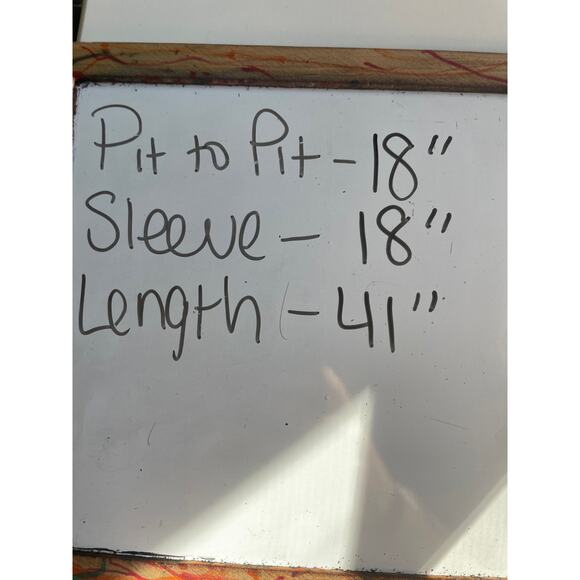 Pit to Pit - 18"
Sleeve - 18"
Length - 41"